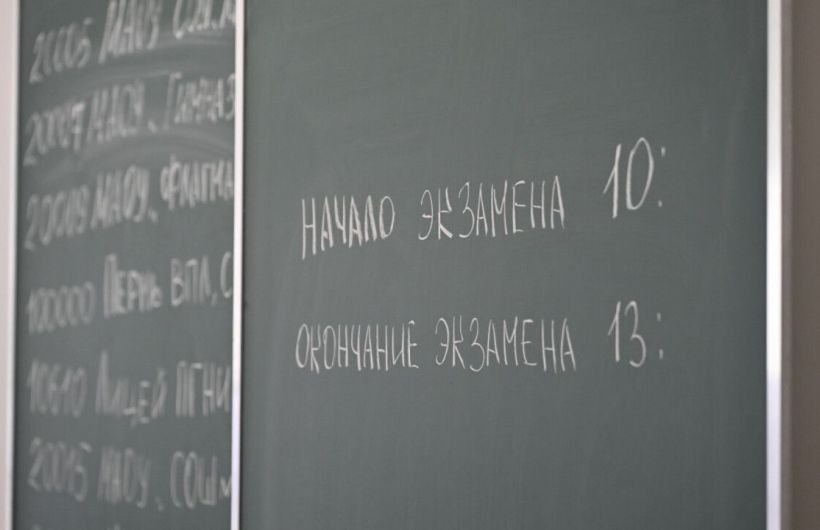 20005 МАОУ
20007 МАОУ „Гимназ
МАОУ „ФЛАГМА
100000 Пермь ВПЛ, С
10610 Лицей ПГНИ
20015 МАОУ „СОШ
НАЧАЛО ЭКЗАМЕНА 10:
ОКОНЧАНИЕ ЭКЗАМЕНА 13: